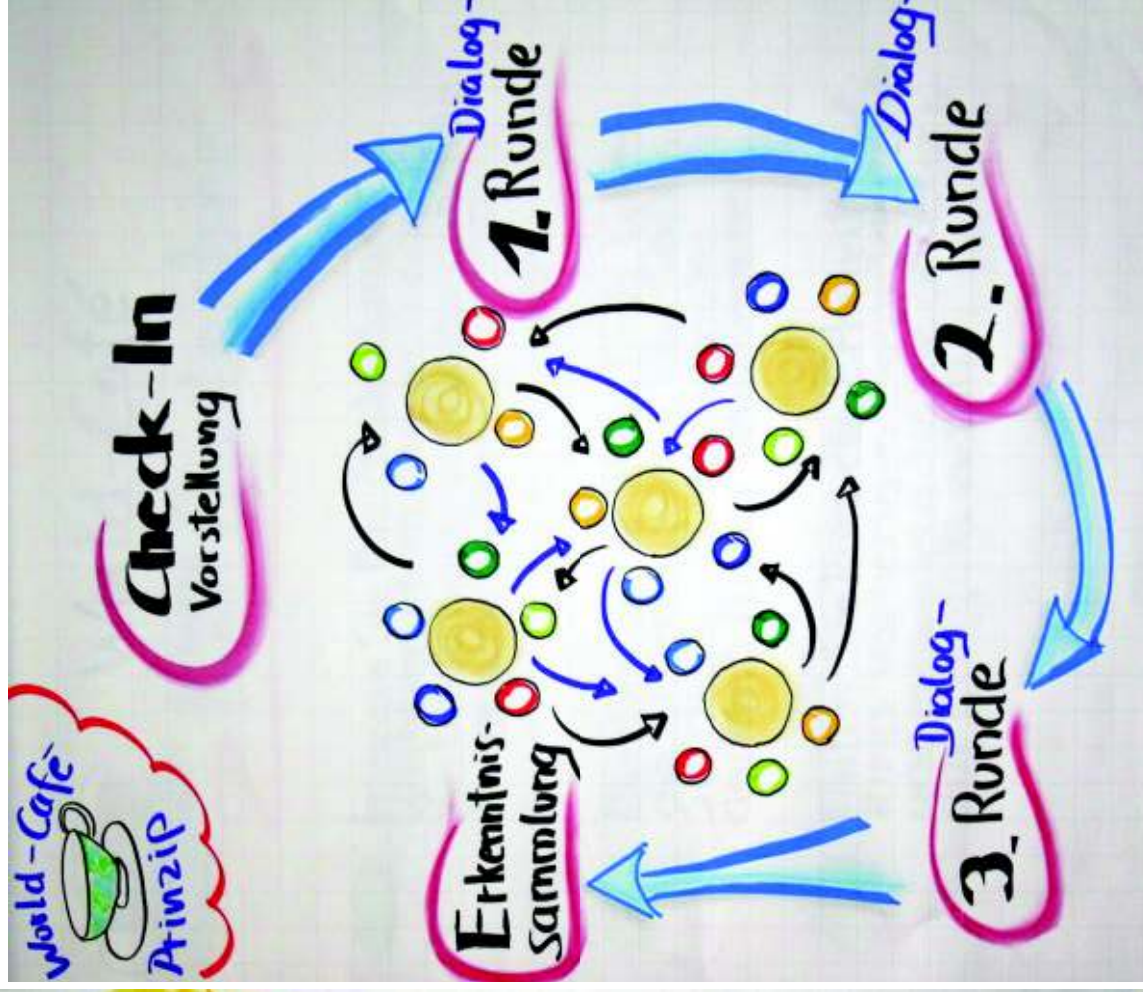 World-Café
Prinzip
Check-In
Vorstellung
Dialog-
1. Runde
Dialog-
2. Runde
Dialog-
3. Runde
Erkenntnis-
sammlung